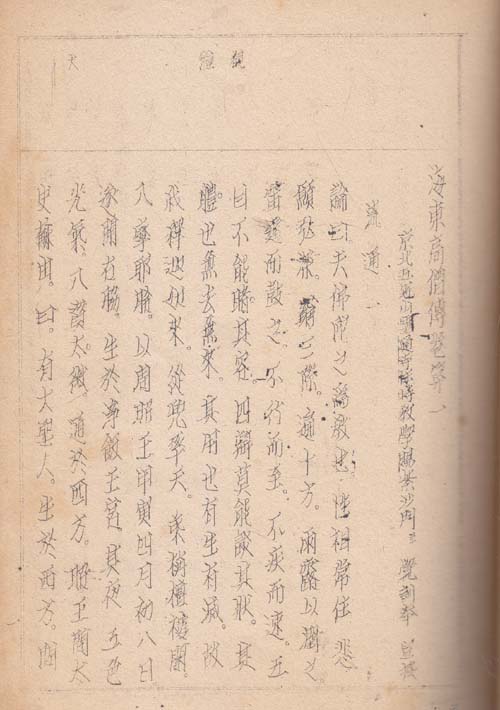 海東高僧傳卷第一
京北五冠山靈通寺住持教學賜紫沙門臣 覺訓奉 宣撰
流通一
論曰夫佛陀之爲教也。性相常住。悲
願洪深。窮三際。遍十方。雨露以潤之。
雷霆而鼓之。不行而至。不疾而速。五
目不能睹其容。四辯莫能談其狀。其
體也無去無來。其用也有生有滅。故
我釋迦如來。從兜率天。乘栴檀樓閣。
入摩耶胎。以周昭王甲寅四月初八日。
遂開右脇。生於淨飯王宮。其夜五色
光氣。入貫太微。通於西方。昭王問太
史蘇由。曰。有大聖人。生於西方。問